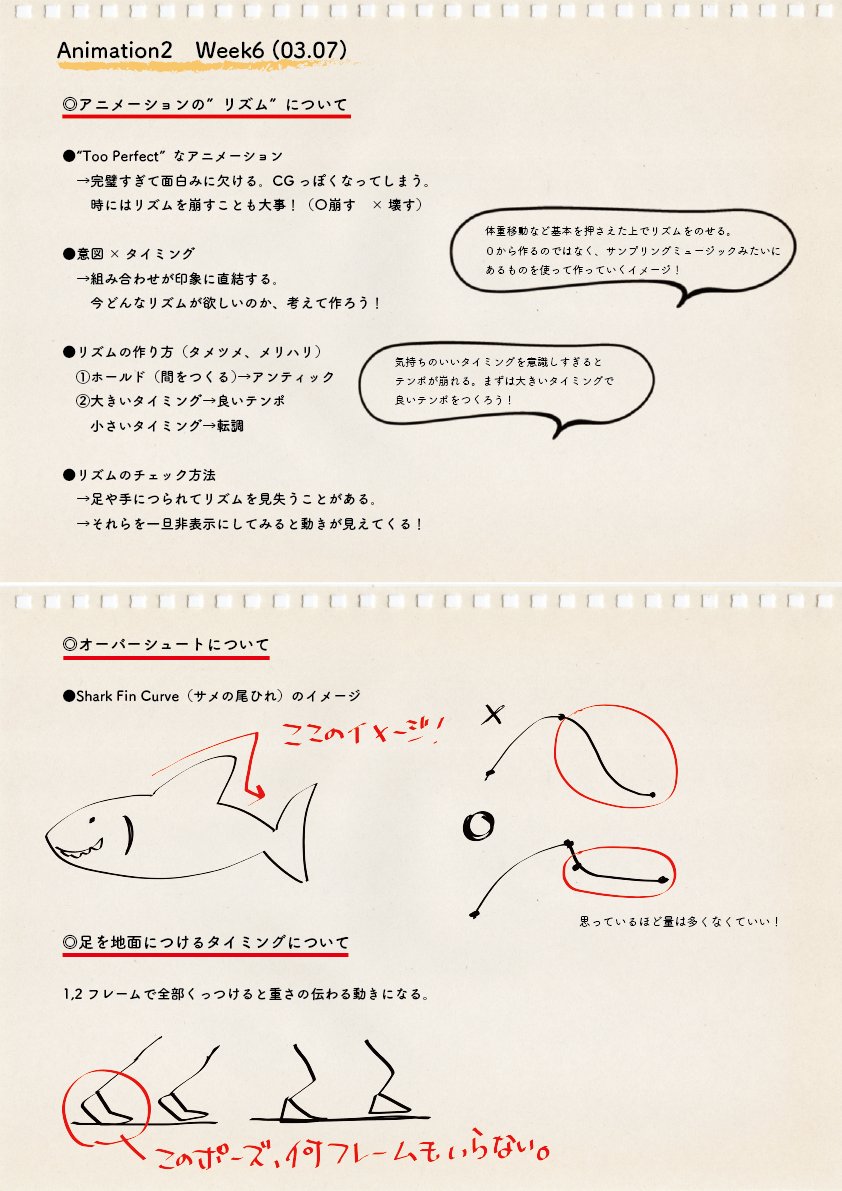 Animation2　Week6 (03.07)
◎アニメーションの”リズム”について
●“Too Perfect”なアニメーション
→完璧すぎて面白みに欠ける。CGっぽくなってしまう。
時にはリズムを崩すことも大事！（〇崩す　×壊す）
体重移動など基本を押さえた上でリズムをのせる。
０から作るのではなく、サンプリングミュージックみたいに
あるものを使って作っていくイメージ！
●意図×タイミング
→組み合わせが印象に直結する。
今どんなリズムが欲しいのか、考えて作ろう！
●リズムの作り方（タメツメ、メリハリ）
①ホールド（間をつくる)→アンティック
②大きいタイミング→良いテンポ
小さいタイミング→転調
気持ちのいいタイミングを意識しすぎると
テンポが崩れる。まずは大きいタイミングで
良いテンポをつくろう！
●リズムのチェック方法
→足や手につられてリズムを見失うことがある。
→それらを一旦非表示にしてみると動きが見えてくる！
◎オーバーシュートについて
●Shark Fin Curve（サメの尾ひれ）のイメージ
ここのイメージ！
×
〇
思っているほど量は多くなくていい！
◎足を地面につけるタイミングについて
1,2フレームで全部くっつけると重さの伝わる動きになる。
このポーズ、何フレームもいらない。